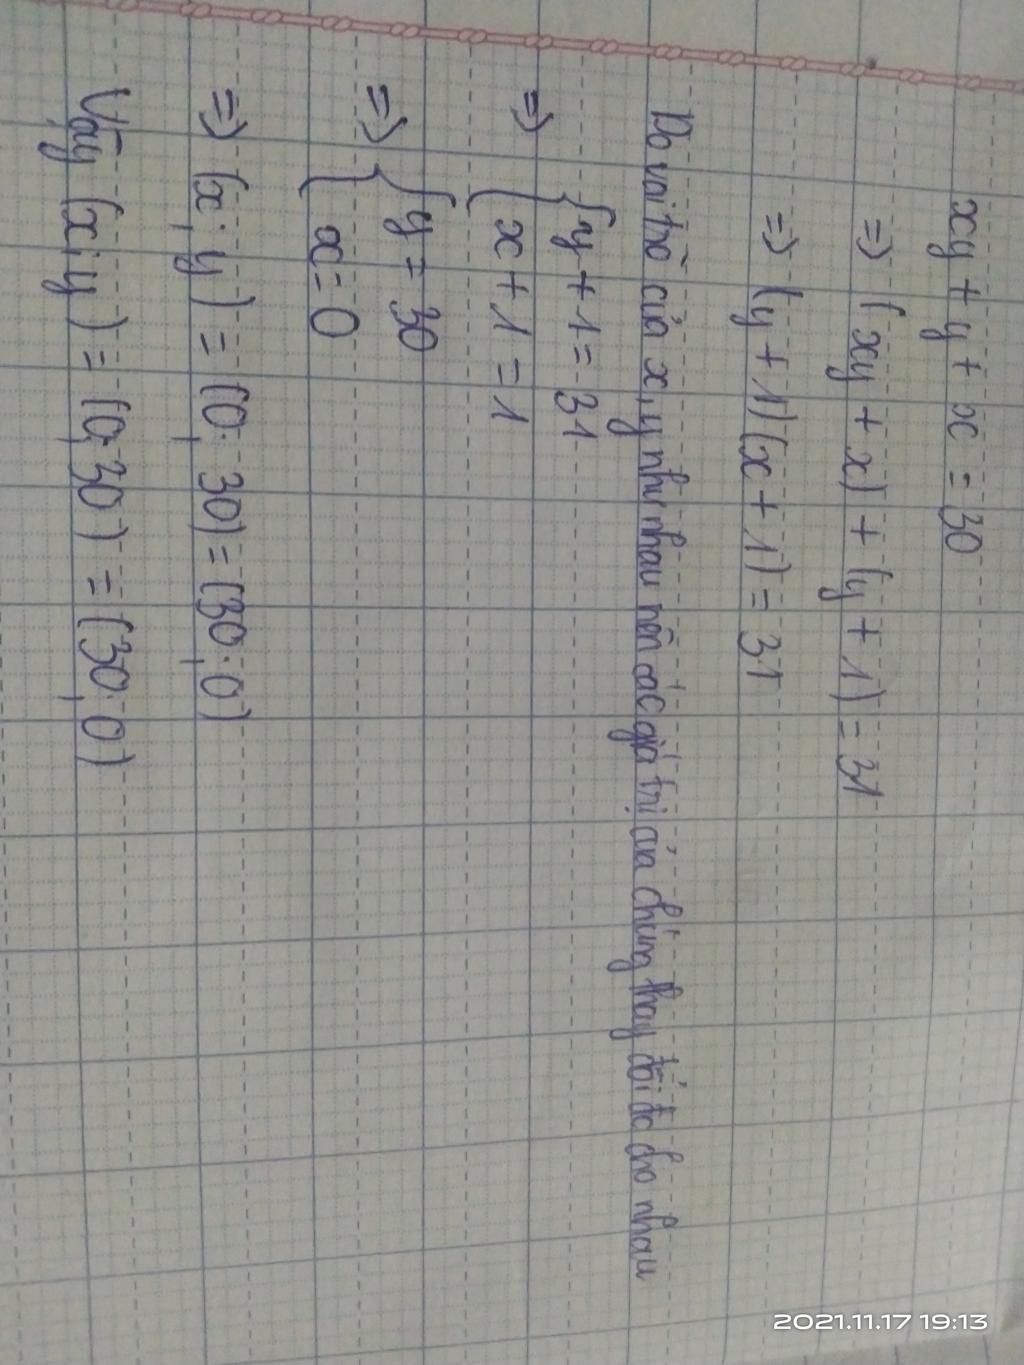 xy + y + x = 30
=> (xy + x) + (y + 1) = 31
=> (y + 1) (x + 1) = 31
Do vai trò của x, y như nhau nên các giá trị của chúng thay đổi đc cho nhau
=> { y + 1 = 31
{ x + 1 = 1
=> { y = 30
{ x = 0
=> (x; y) = (0; 30) = (30; 0)
Vậy (x; y) = (0; 30) = (30; 0)
2021.11.17 19:13